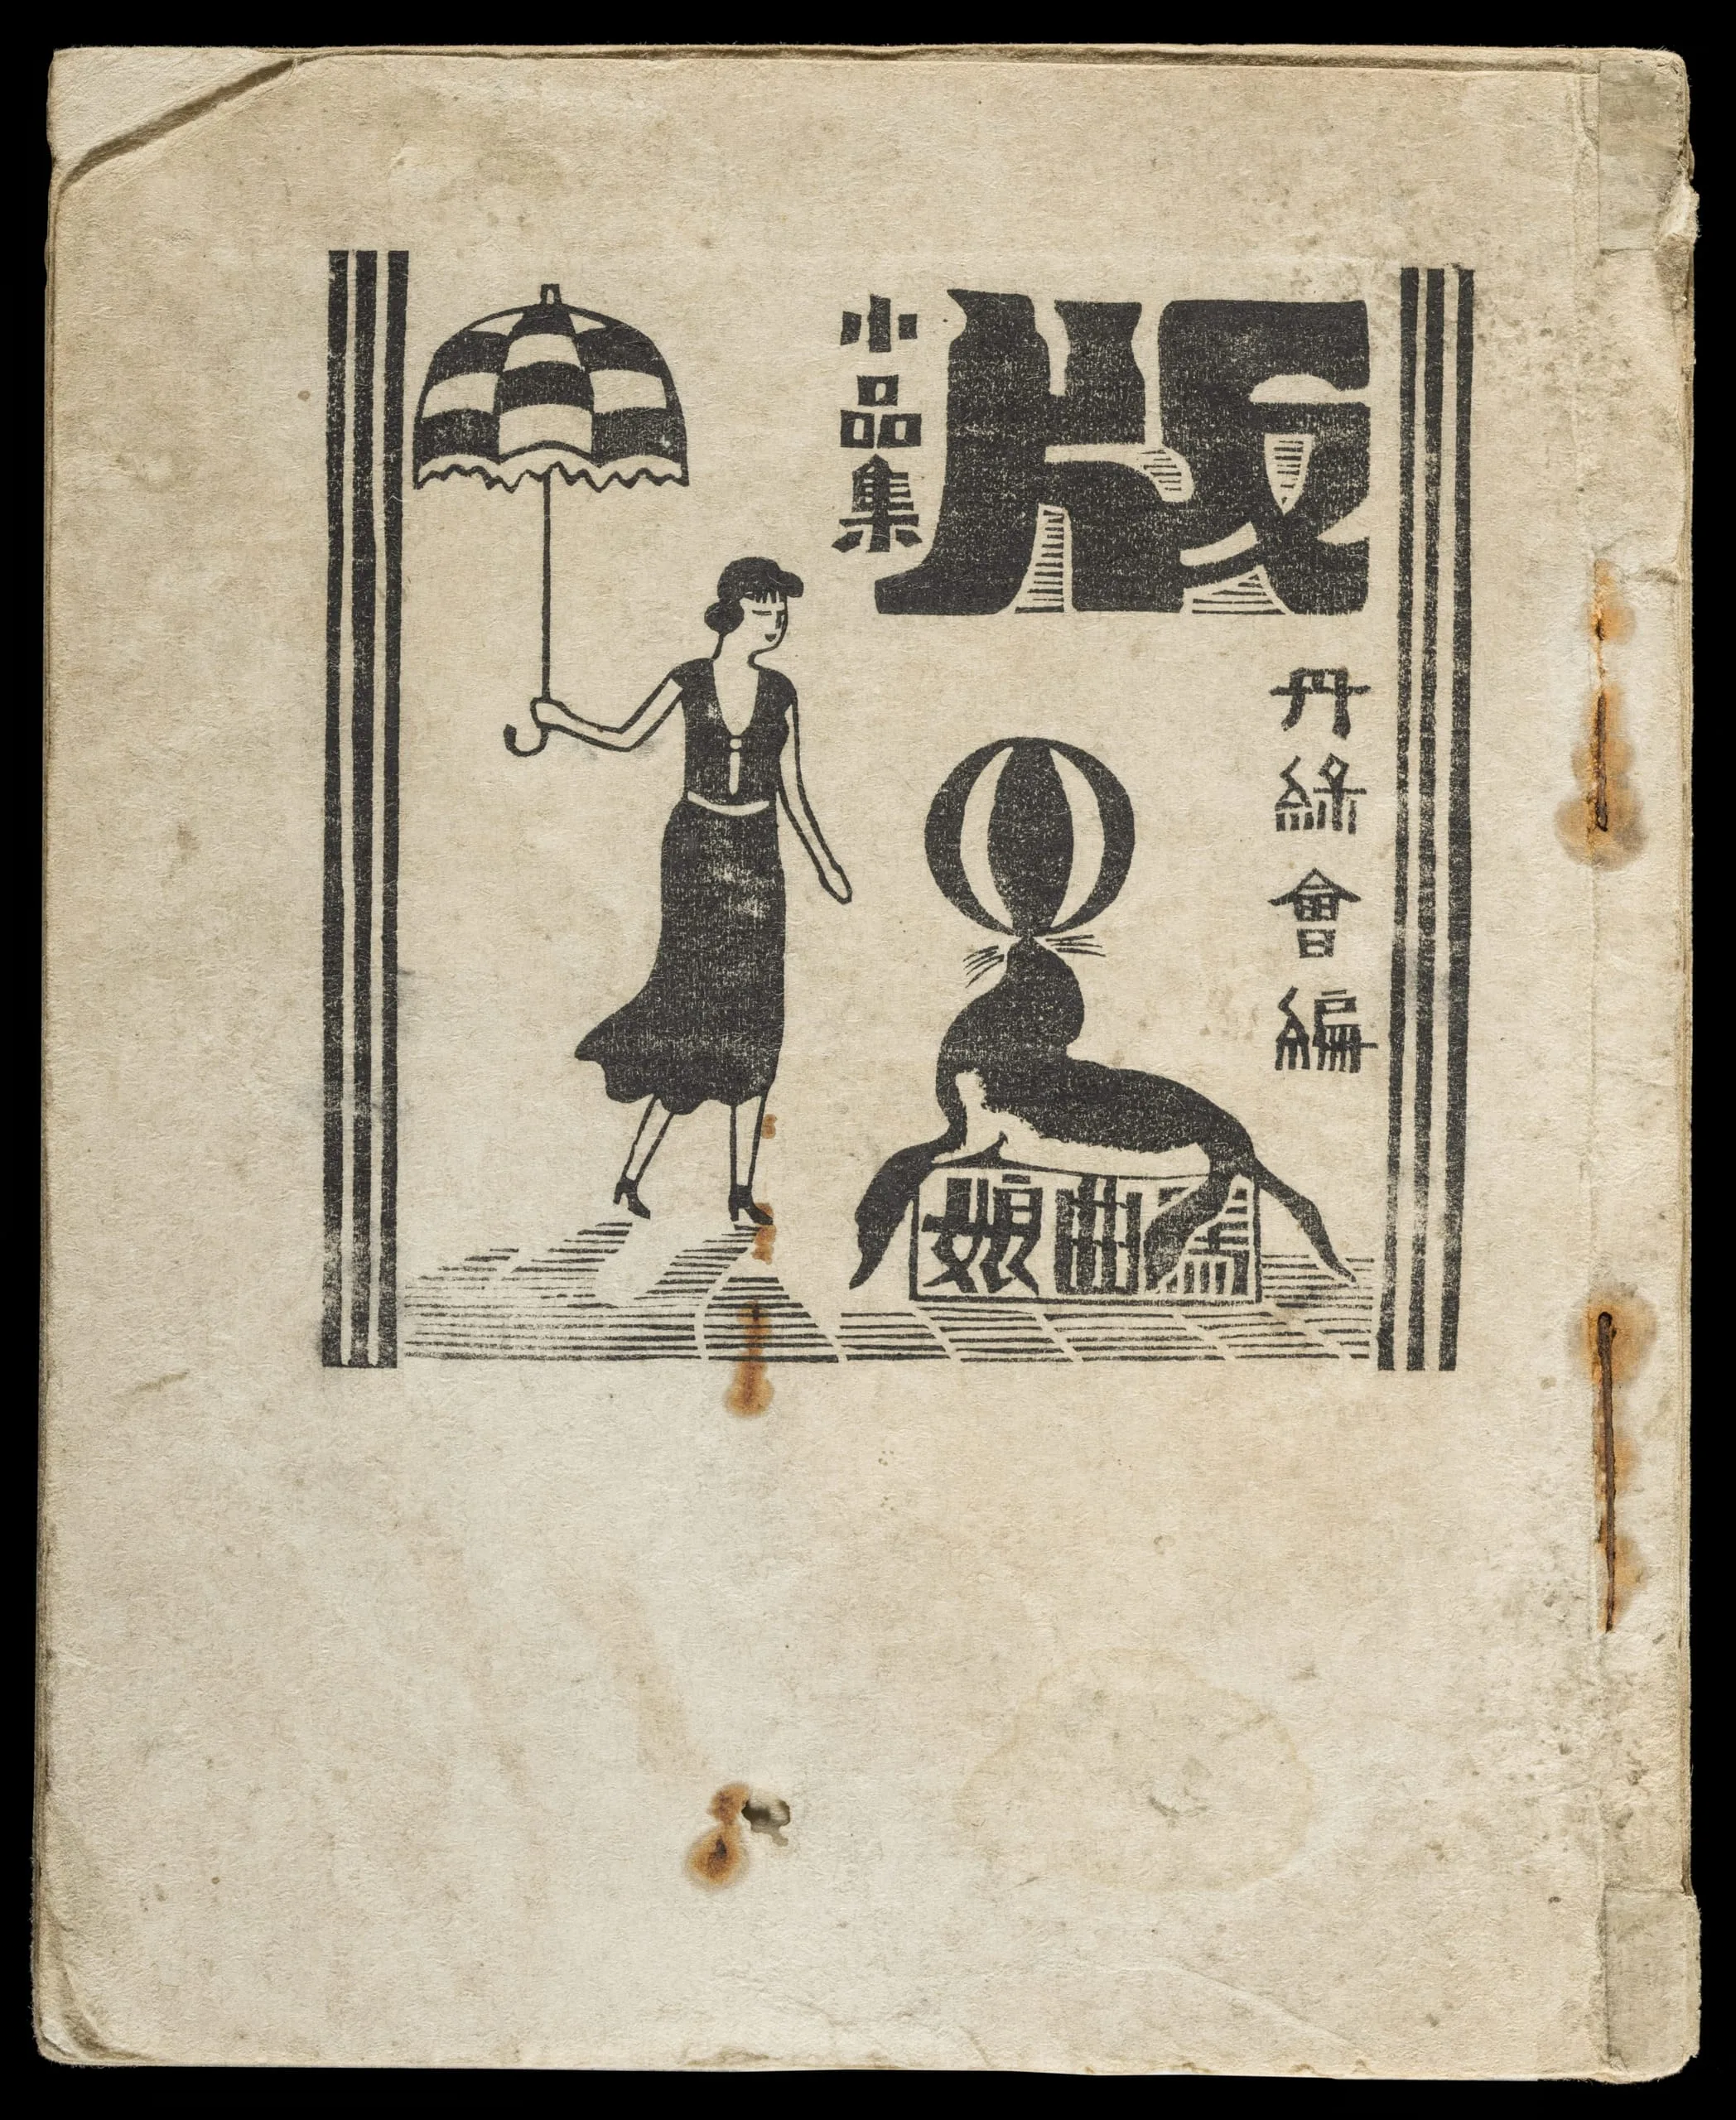 版
小品集
丹緑會編
曲娘